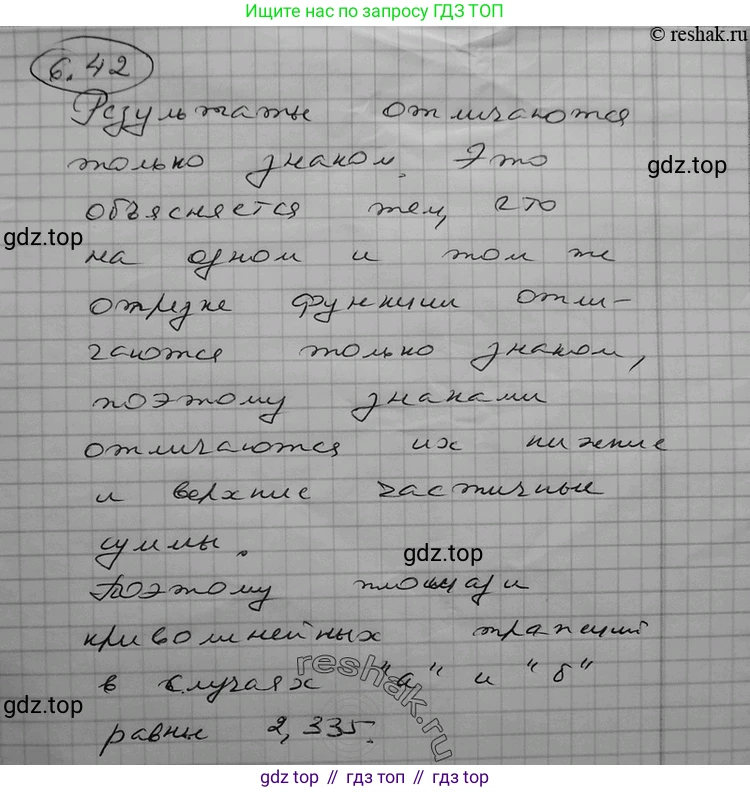 Ищите нас по запросу ГДЗ ТОП
© reshak.ru
6.42
Результаты отличаются
только знаком. Это
gdz.top
объясняется тем, что
gdz.top
на одном и том же
отрезке функции отли-
чаются только знаком,
поэтому знаками
отличаются их нижние
и верхние частичные
суммы.
gdz.top
Поэтому площади
криволинейных трапеций
reshak.ru
в случаях "а" и "б"
gdz.top
равны 2,335.
gdz.top // гдз топ // gdz top